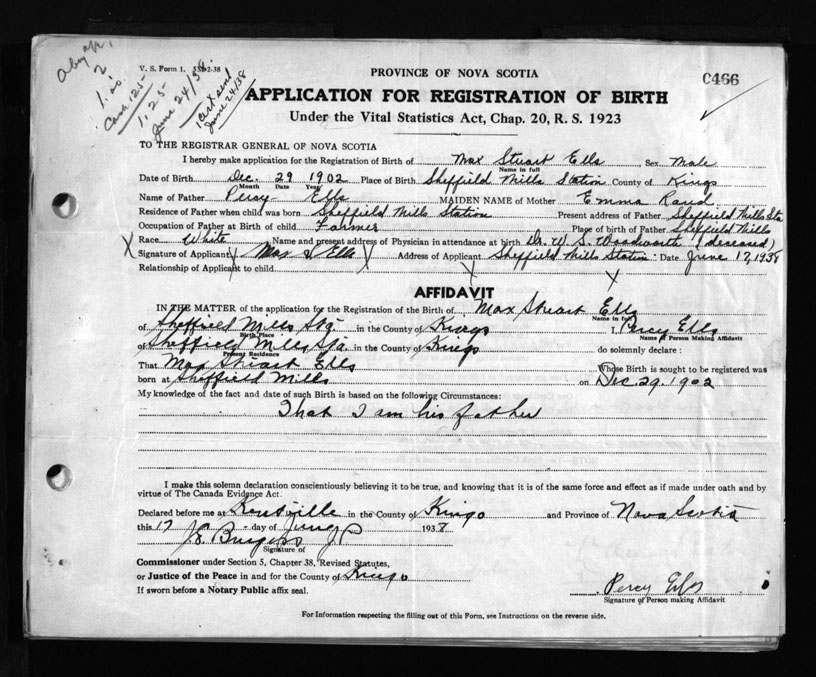 V. S. Form 1.
PROVINCE OF NOVA SCOTIA
C466
1.25
June 24/38
June 24/38
APPLICATION FOR REGISTRATION OF BIRTH
Under the Vital Statistics Act, Chap. 20, R. S. 1923
TO THE REGISTRAR GENERAL OF NOVA SCOTIA
I hereby make application for the Registration of Birth of Max Stuart Ells Sex Male
Name in full
Date of Birth Dec. 29 1902 Place of Birth Sheffield Mills Station County of Kings
Month Date Year
Name of Father Percy Ells MAIDEN NAME of Mother Emma Rand
Residence of Father when child was born Sheffield Mills Station Present address of Father Sheffield Mills Sta
Occupation of Father at Birth of child Farmer Place of birth of Father Sheffield Mills
X Race White Name and present address of Physician in attendance at birth Dr. W. S. Woodworth (deceased)
Signature of Applicant X Max S Ells X Address of Applicant Sheffield Mills Station Date June 17, 1938
Relationship of Applicant to child X X
AFFIDAVIT
IN THE MATTER of the application for the Registration of the Birth of Max Stuart Ells
Name in full
of Sheffield Mills Sta. in the County of Kings I, Percy Ells
Birth Place Name of Person Making Affidavit
of Sheffield Mills Sta. in the County of Kings do solemnly declare :
Present Residence
That Max Stuart Ells Whose Birth is sought to be registered was
born at Sheffield Mills on Dec. 29, 1902
My knowledge of the fact and date of such Birth is based on the following Circumstances:
That I am his father
I make this solemn declaration conscientiously believing it to be true, and knowing that it is of the same force and effect as if made under oath and by
virtue of The Canada Evidence Act.
Declared before me at Kentville in the County of Kings and Province of Nova Scotia
this 17 day of June 1938
Burgess J P
Signature of
Commissioner under Section 5, Chapter 38, Revised Statutes,
or Justice of the Peace in and for the County of Kings
If sworn before a Notary Public affix seal.
Percy Ells
Signature of Person making Affidavit
For Information respecting the filling out of this Form, see Instructions on the reverse side.